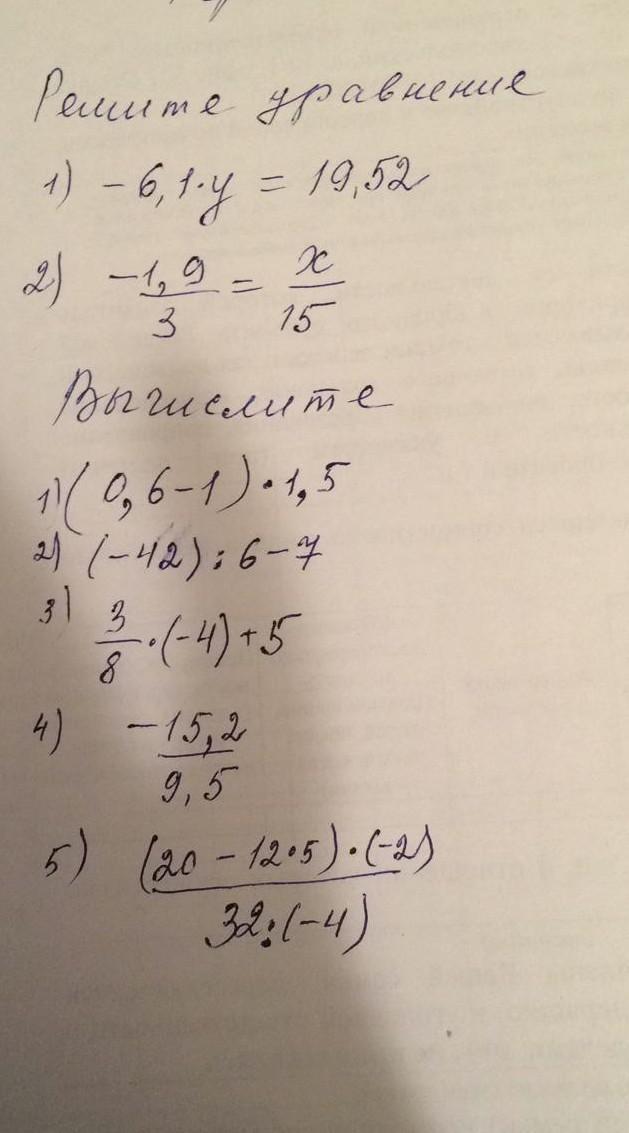 Решите уравнение
1) -6,1·y = 19,52
2) -1,9/3 = x/15
Вычислите
1) (0,6-1)·1,5
2) (-42):6-7
3) 3/8·(-4)+5
4) -15,2/9,5
5) (20-12·5)·(-2)/32:(-4)